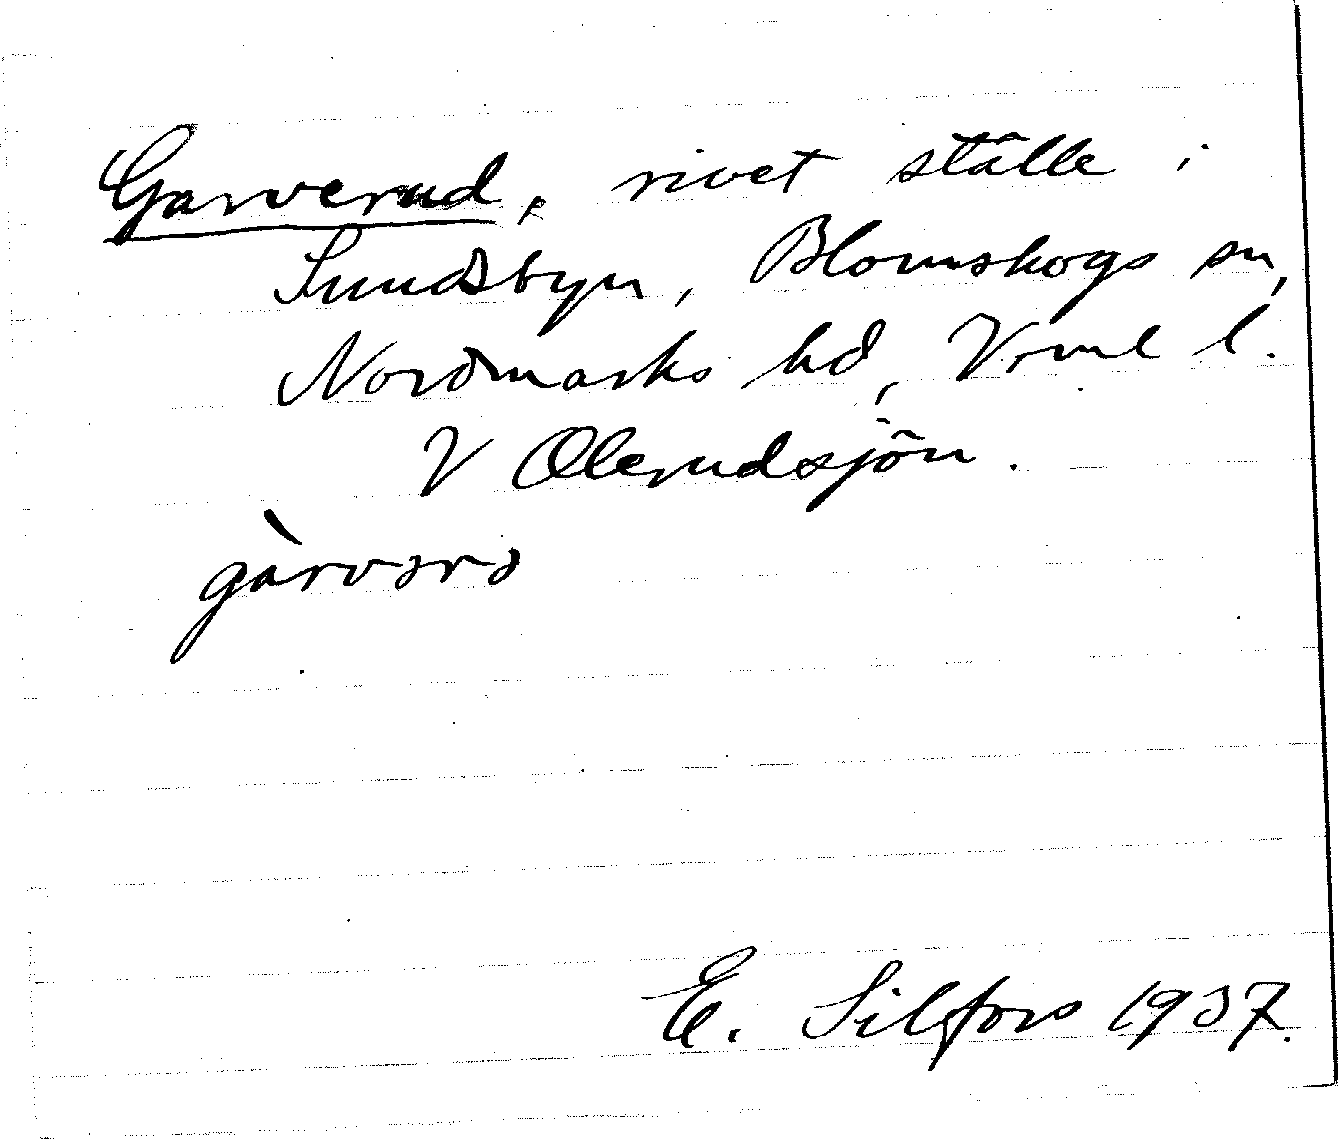 Garverud, rivet ställe i
Sundsbyn, Blomskogs sn,
Nordmarks hd, Vrml l.
V Olerudsjön.
gàrvərə
E. Silfors 1937.